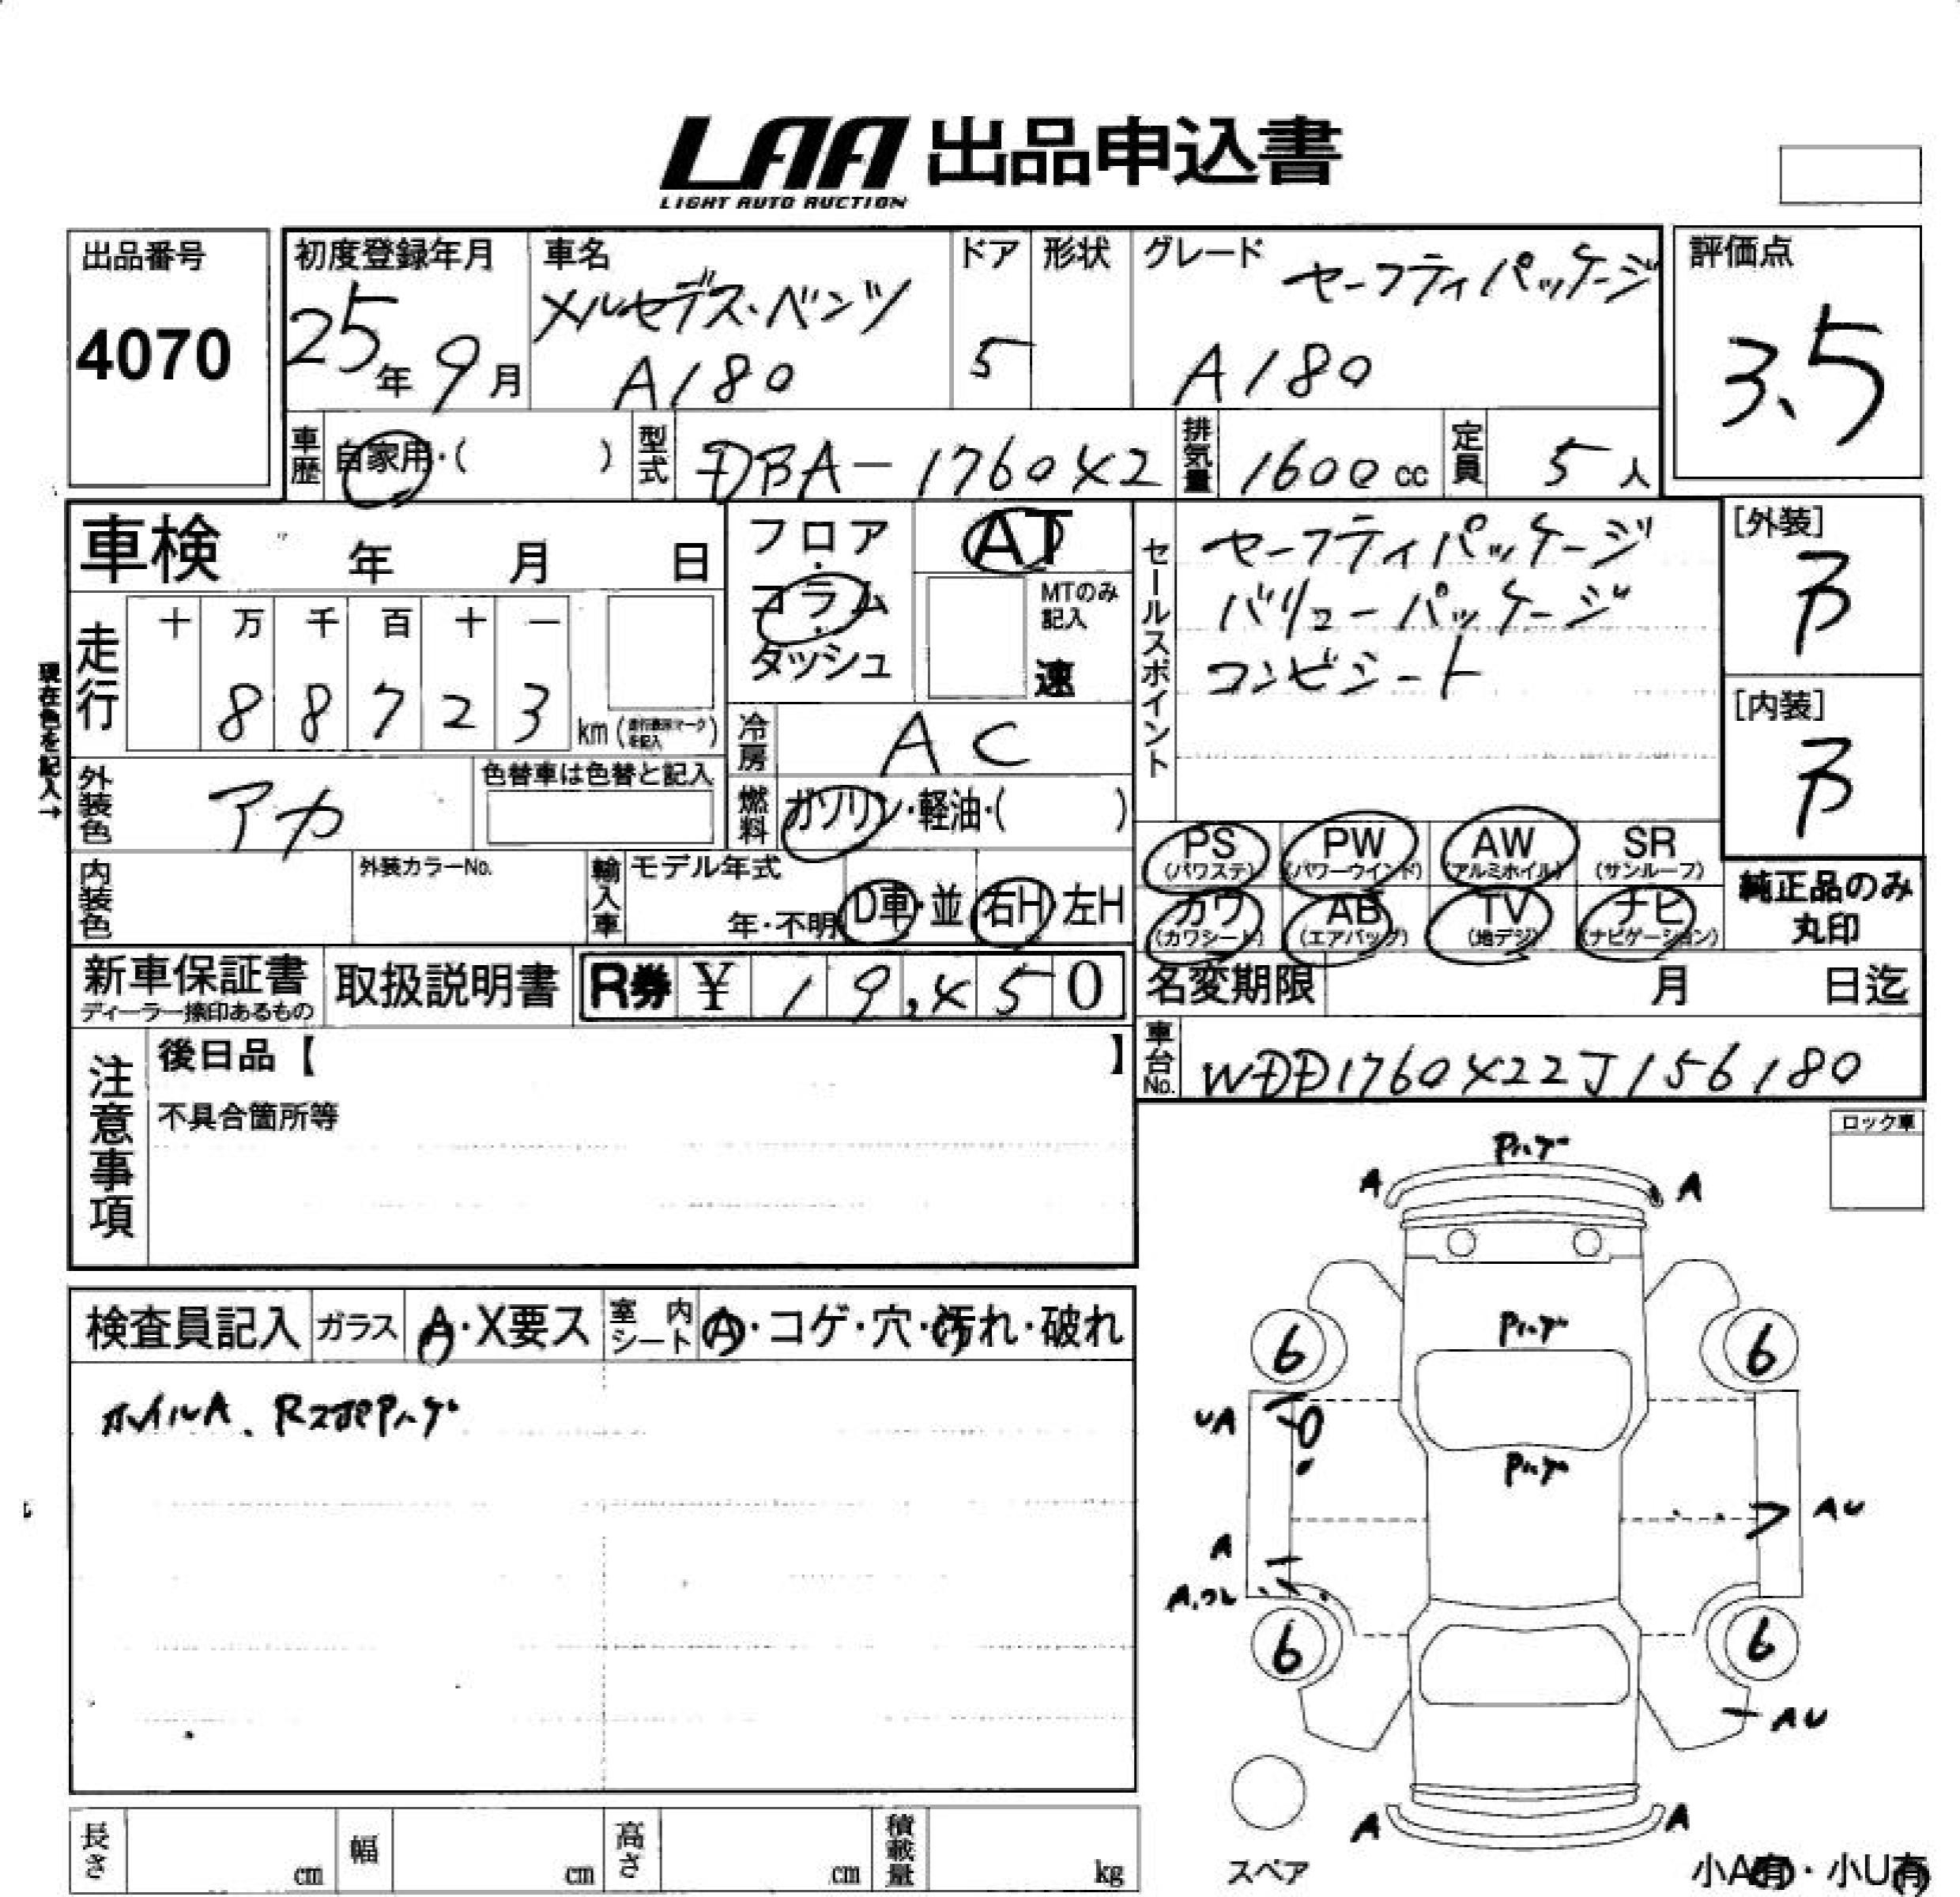 LAA 出品申込書
LIGHT AUTO AUCTION
出品番号
4070
初度登録年月
25年 9月
車名
メルセデス・ベンツ
A180
ドア
5
形状
グレード
セーフティパッケージ
A180
評価点
3.5
車歴
自家用・( )
型式
DBA-176042
排気量
1600 cc
定員
5 人
車検 年 月 日
走行
十 万 千 百 十 一
8 8 7 2 3
km
現在色を記入→
外装色
アカ
色替車は色替と記入
内装色
外装カラーNo.
輸入車
モデル年式
年・不明
D車・並
右H・左H
フロア
・
コラム
・
ダッシュ
AT
MTのみ
記入
速
冷房
AC
燃料
ガソリン・軽油・( )
セールスポイント
セーフティパッケージ
バリューパッケージ
コンビシート
[外装]
B
[内装]
B
PS
(パワステ)
PW
(パワーウインド)
AW
(アルミホイル)
SR
(サンルーフ)
カワ
(カワシート)
AB
(エアバッグ)
TV
(地デジ)
ナビ
(ナビゲーション)
純正品のみ
丸印
新車保証書
ディーラー捺印あるもの
取扱説明書
R券 ¥ 19,450
名変期限 月 日迄
車台No.
WDD1760422J156180
注意事項
後日品【 】
不具合箇所等
ロック車
検査員記入
ガラス
A・X要ス
室内シート
A・コゲ・穴・汚れ・破れ
ホイルA、RスポPハゲ
Pハゲ
A
A
Pハゲ
6
6
UA
Pハゲ
AU
A
A.コレ
6
6
AU
A
A
スペア
小A有・小U有
長さ
cm
幅
cm
高さ
cm
積載量
kg